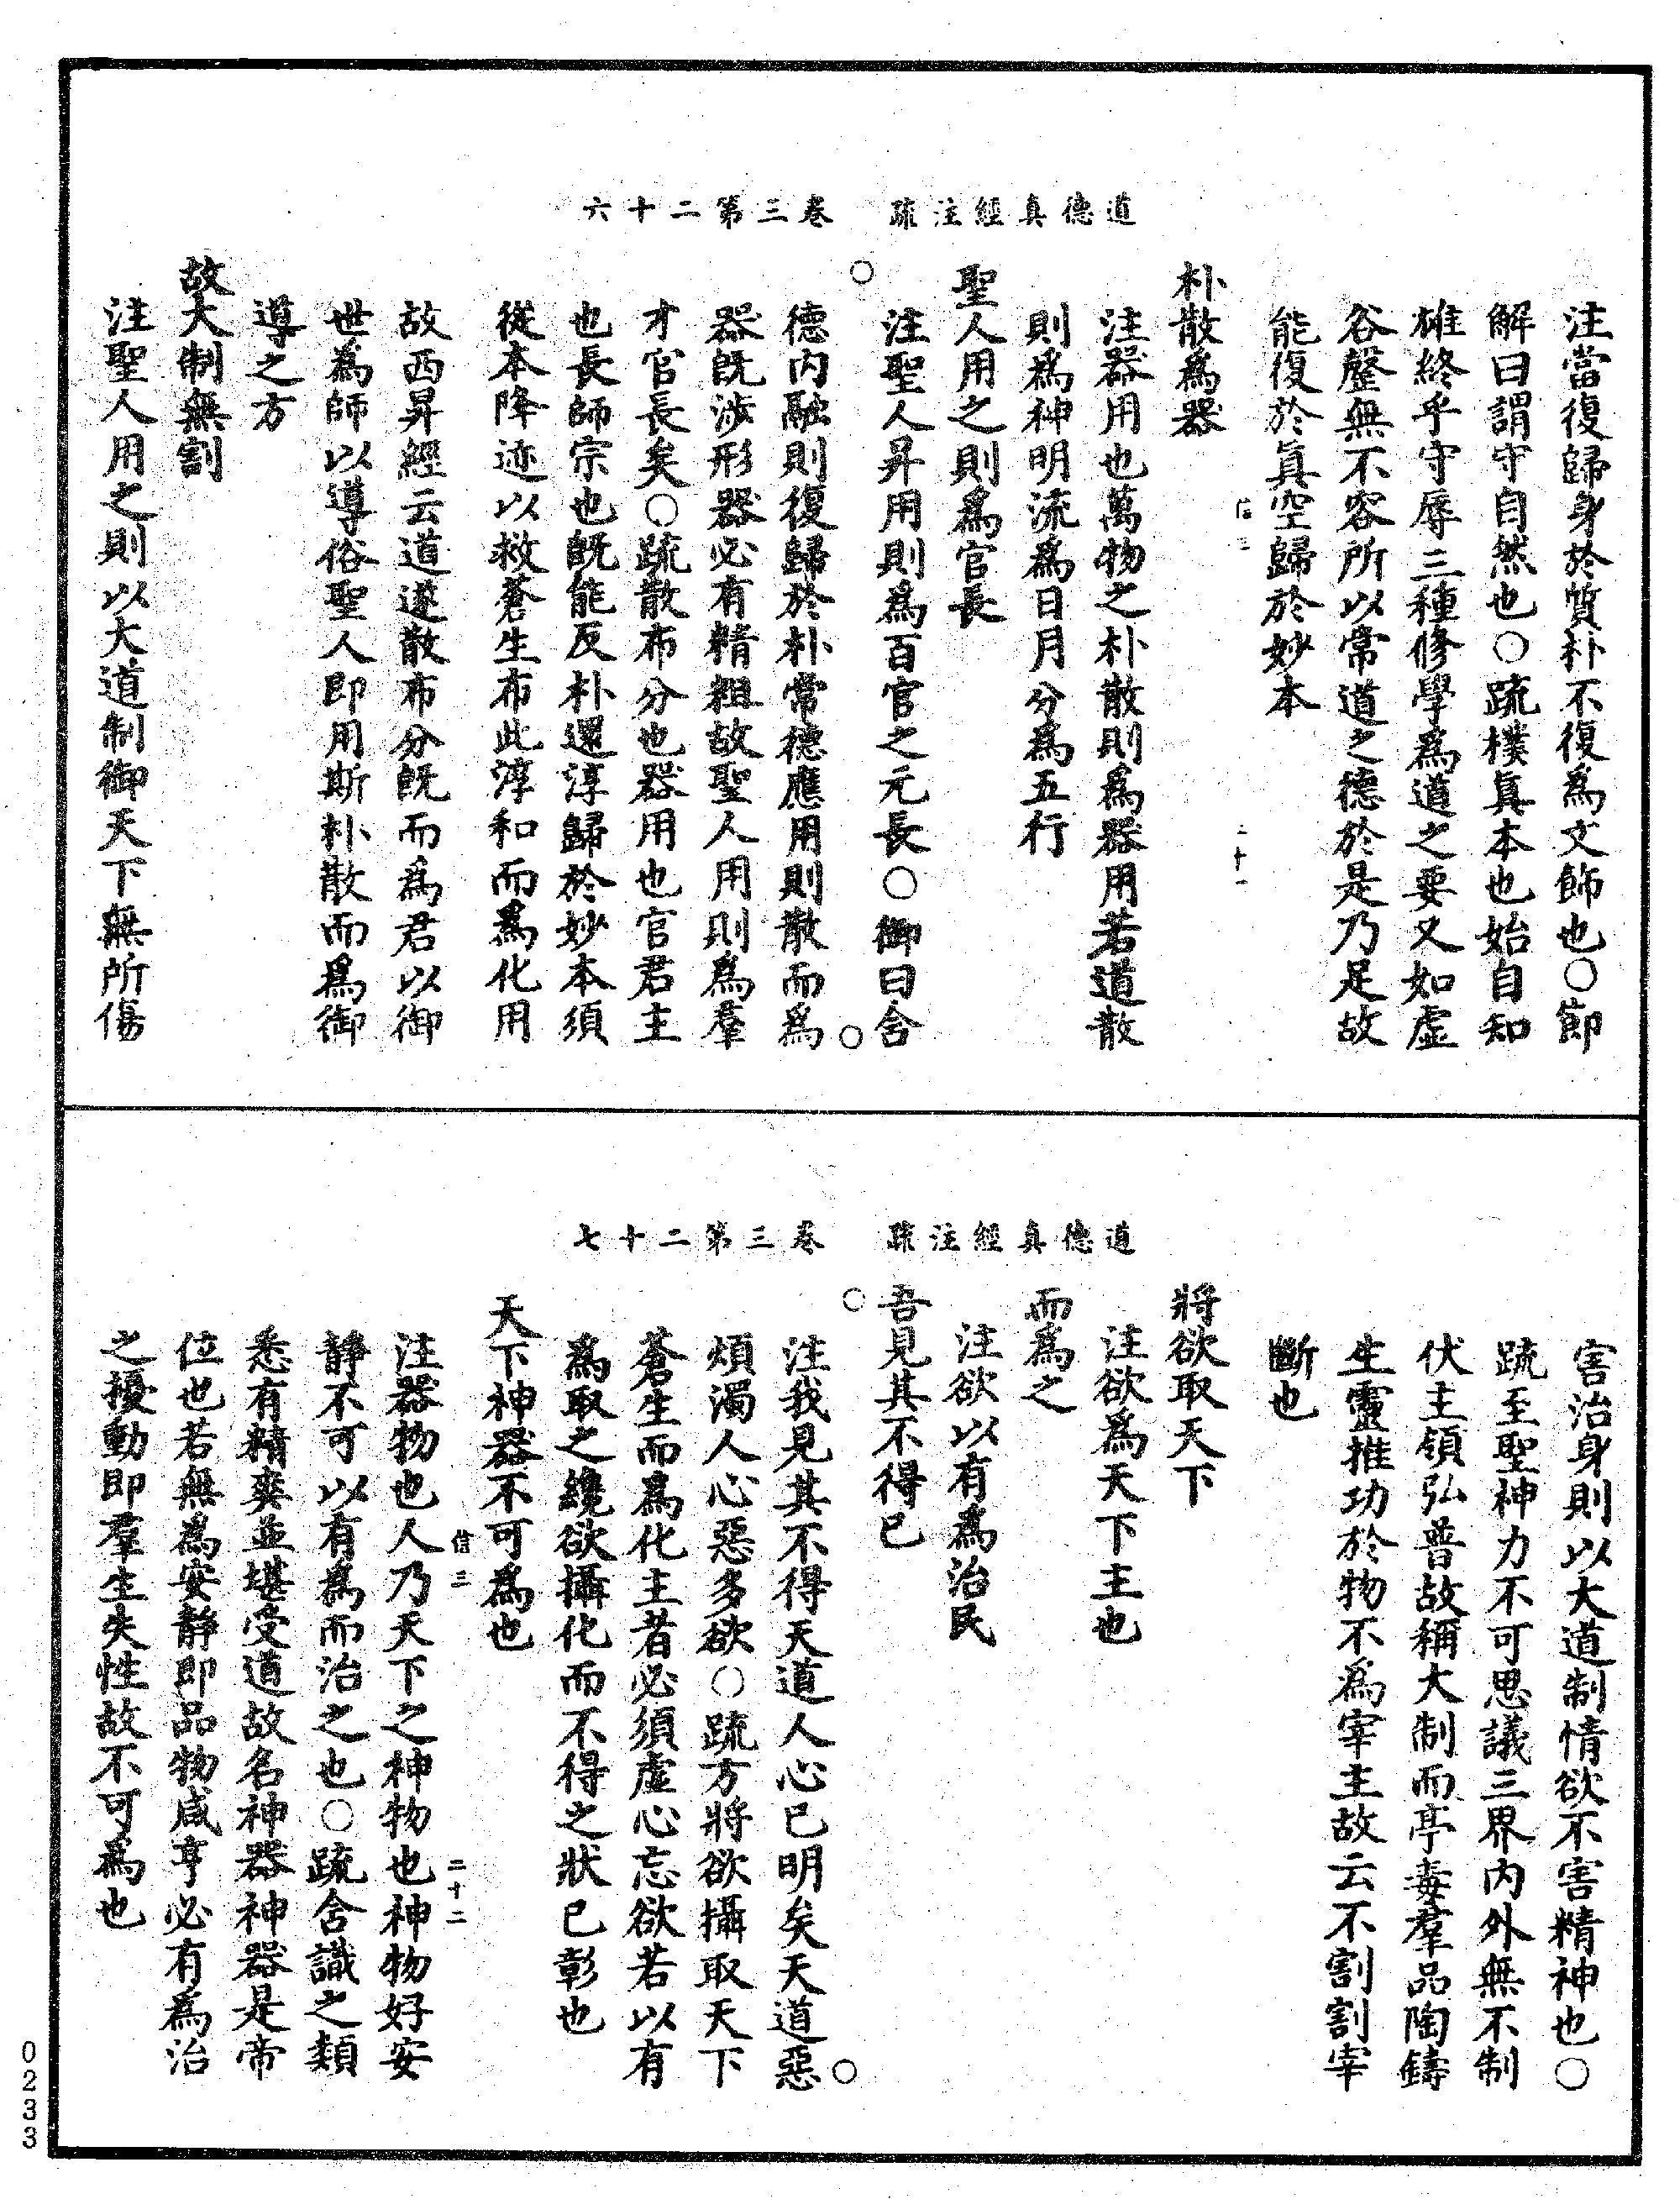 道德真經注疏　卷三第二十六
注當復歸身於質朴不復爲文飾也○節
解曰謂守自然也○疏樸真本也始自知
雄終乎守辱三種修學爲道之要又如虛
谷罄無不容所以常道之德於是乃足故
能復於眞空歸於妙本
信三　二十一
朴散爲器
注器用也萬物之朴散則爲器用若道散
則爲神明流爲日月分爲五行
聖人用之則爲官長
注聖人昇用則爲百官之元長○御曰含
德内融則復歸於朴常德應用則散而爲
器既涉形器必有精粗故聖人用則爲羣
才官長矣○疏散布分也器用也官君主
也長師宗也既能反朴還淳歸於妙本須
從本降迹以救蒼生布此淳和而爲化用
故西昇經云道遂散布分既而爲君以御
世爲師以導俗聖人即用斯朴散而爲御
導之方
故大制無割
注聖人用之則以大道制御天下無所傷
道德真經注疏　卷三第二十七
害治身則以大道制情欲不害精神也○
疏至聖神力不可思議三界内外無不制
伏主領弘普故稱大制而亭毒羣品陶鑄
生靈推功於物不爲宰主故云不割割宰
斷也
將欲取天下
注欲爲天下主也
而爲之
注欲以有爲治民
吾見其不得已
注我見其不得天道人心已明矣天道惡
煩濁人心惡多欲○疏方將欲攝取天下
蒼生而爲化主者必須虛心忘欲若以有
爲取之纔欲攝化而不得之狀已彰也
天下神器不可爲也
信三　二十二
注器物也人乃天下之神物也神物好安
靜不可以有爲而治之也○疏含識之類
悉有精爽並堪受道故名神器神器是帝
位也若無爲安靜即品物咸亨必有爲治
之擾動即羣生失性故不可爲也
0233